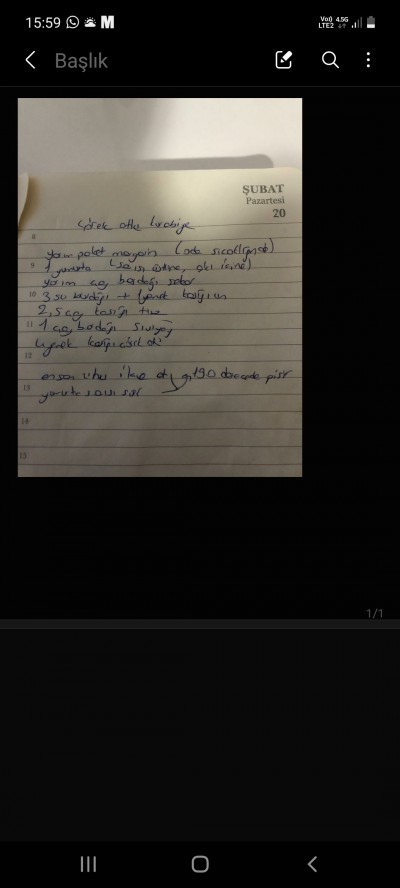 15:59
Vo)) 4.5G
LTE2
Başlık
ŞUBAT
Pazartesi
20
çörek otlu kurabiye
8
yarım paket margarin (oda sıcaklığında)
9 1 yumurta (sarısı üstüne, akı içine)
yarım çay bardağı
10 3 su bardağı + 1 yemek kaşığı un
2,5 çay kaşığı tuz
11 1 çay bardağı sıvıyağ
1 yemek kaşığı
12
en son unu ilave et 190 derecede pişir
13 yumurta sarısı sür
14
15
1/1